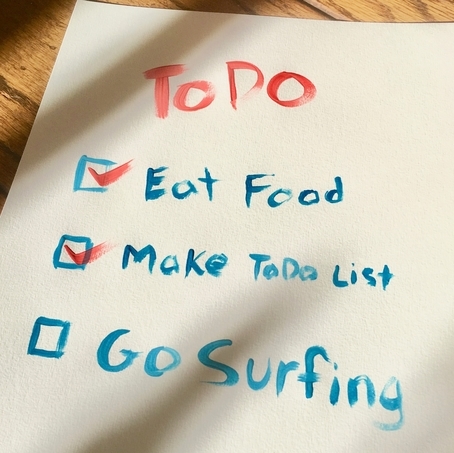 ToDO
Eat Food
Make ToDo List
Go Surfing